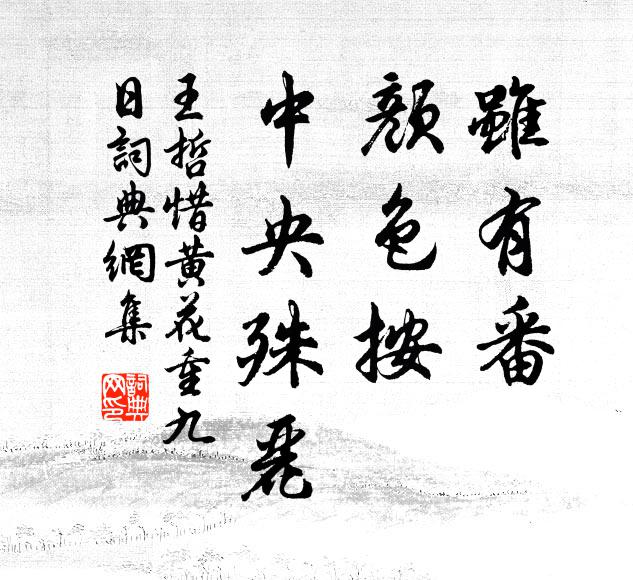 雖有番
顏色按
中央殊麗
王哲惜黃花重九
日詞典網集
詞典
网印